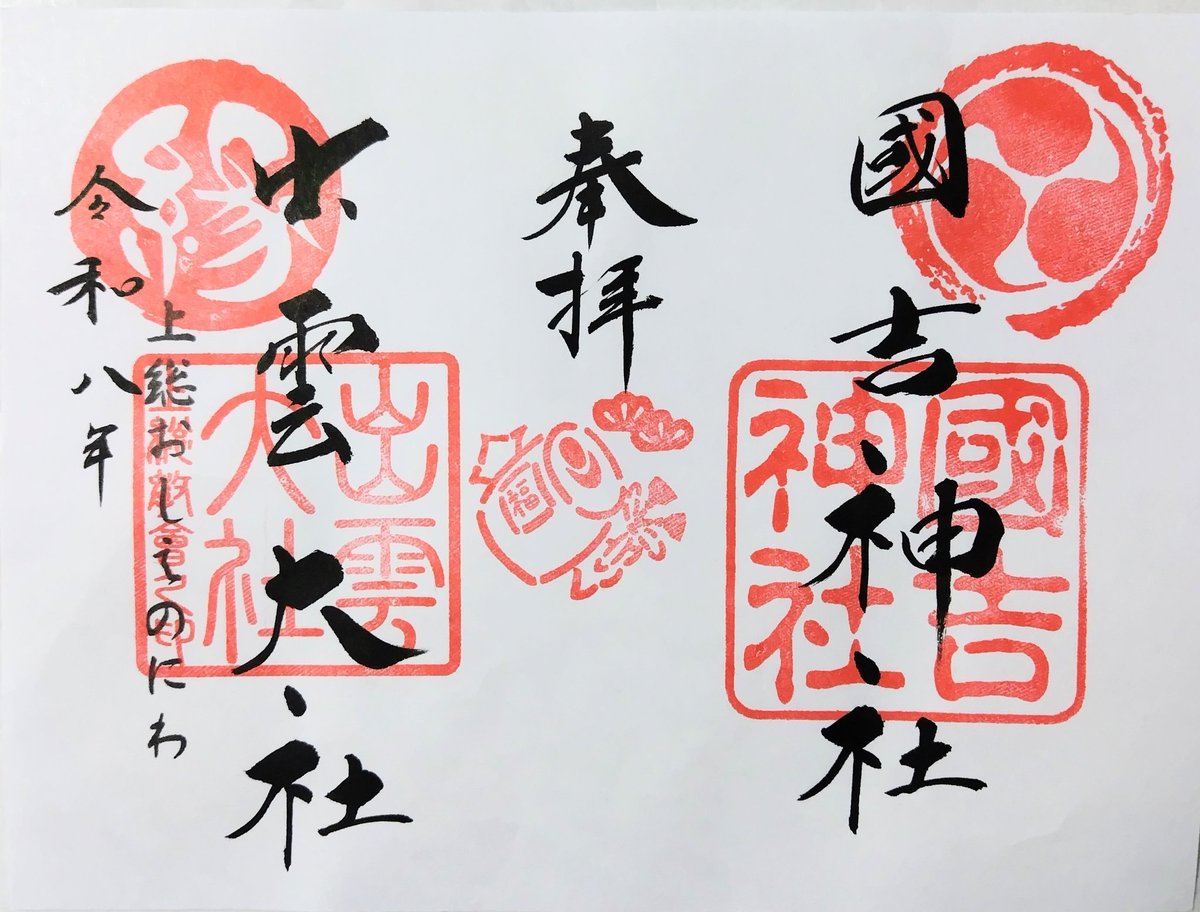 國吉神社
國吉
神社
奉拝
福
出雲大社
縁
出雲
大社
上総おしえのにわ
令和八年